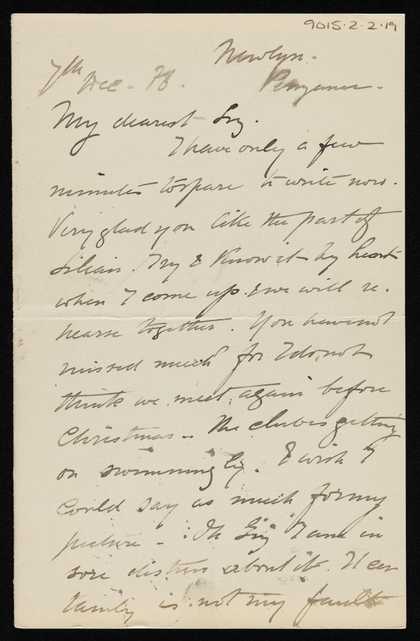 9015·2-2·19
Newlyn.
7th Dec. 78. Penzance.
My dearest
I have only a few
minutes to spare to write now.
Very glad you like the part of
Lilian. Try & know it by heart
when I come up & we will re-
hearse together. You have not
missed much for I do not
think we meet again before
Christmas. The club is getting
on swimmingly. I wish I
could say as much for my
picture - Oh I am in
sore distress about it. It cer-
tainly is not my fault